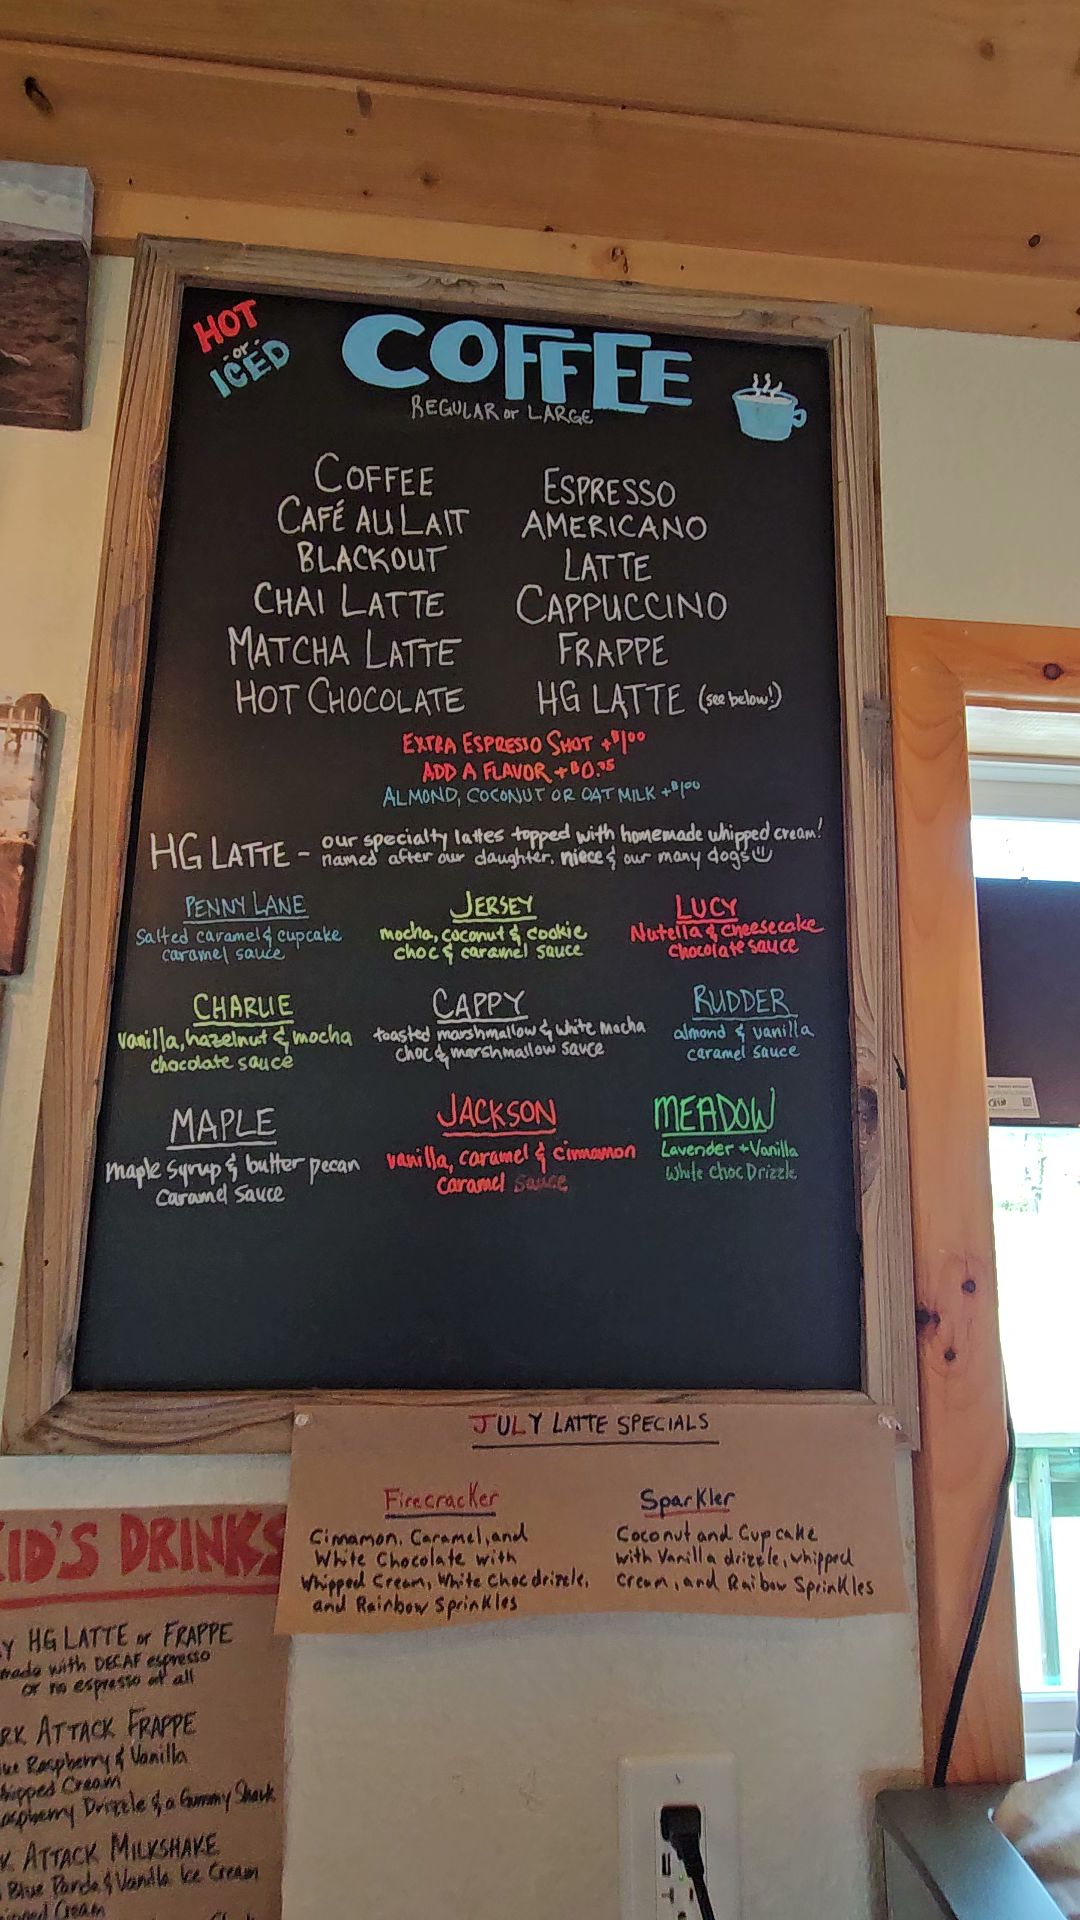 HOT
-or-
ICED
COFFEE
REGULAR or LARGE
COFFEE
CAFÉ AU LAIT
BLACKOUT
CHAI LATTE
MATCHA LATTE
HOT CHOCOLATE
ESPRESSO
AMERICANO
LATTE
CAPPUCCINO
FRAPPE
HG LATTE (see below!)
EXTRA ESPRESSO SHOT +$1.00
ADD A FLAVOR +$0.75
ALMOND, COCONUT OR OAT MILK +$1.00
HG LATTE - our specialty lattes topped with homemade whipped cream!
named after our daughter, niece & our many dogs
PENNY LANE
Salted caramel & cupcake
caramel sauce
JERSEY
mocha, coconut & cookie
choc & caramel sauce
LUCY
Nutella & cheesecake
chocolate sauce
CHARLIE
vanilla, hazelnut & mocha
chocolate sauce
CAPPY
toasted marshmallow & white mocha
choc & marshmallow sauce
RUDDER
almond & vanilla
caramel sauce
MAPLE
maple syrup & butter pecan
caramel sauce
JACKSON
vanilla, caramel & cinnamon
caramel sauce
MEADOW
Lavender + Vanilla
White Choc Drizzle
JULY LATTE SPECIALS
Firecracker
Cinnamon, Caramel, and
White Chocolate with
Whipped Cream, White Choc drizzle,
and Rainbow Sprinkles
Sparkler
Coconut and Cupcake
with Vanilla drizzle, whipped
cream, and Raibow Sprinkles
ID'S DRINKS
Y HG LATTE or FRAPPE
made with DECAF espresso
or no espresso at all
RK ATTACK FRAPPE
lue Raspberry & Vanilla
hipped Cream
aspberry Drizzle & a Gummy Shark
K ATTACK MILKSHAKE
Blue Panda & Vanilla Ice Cream
hipped Cream